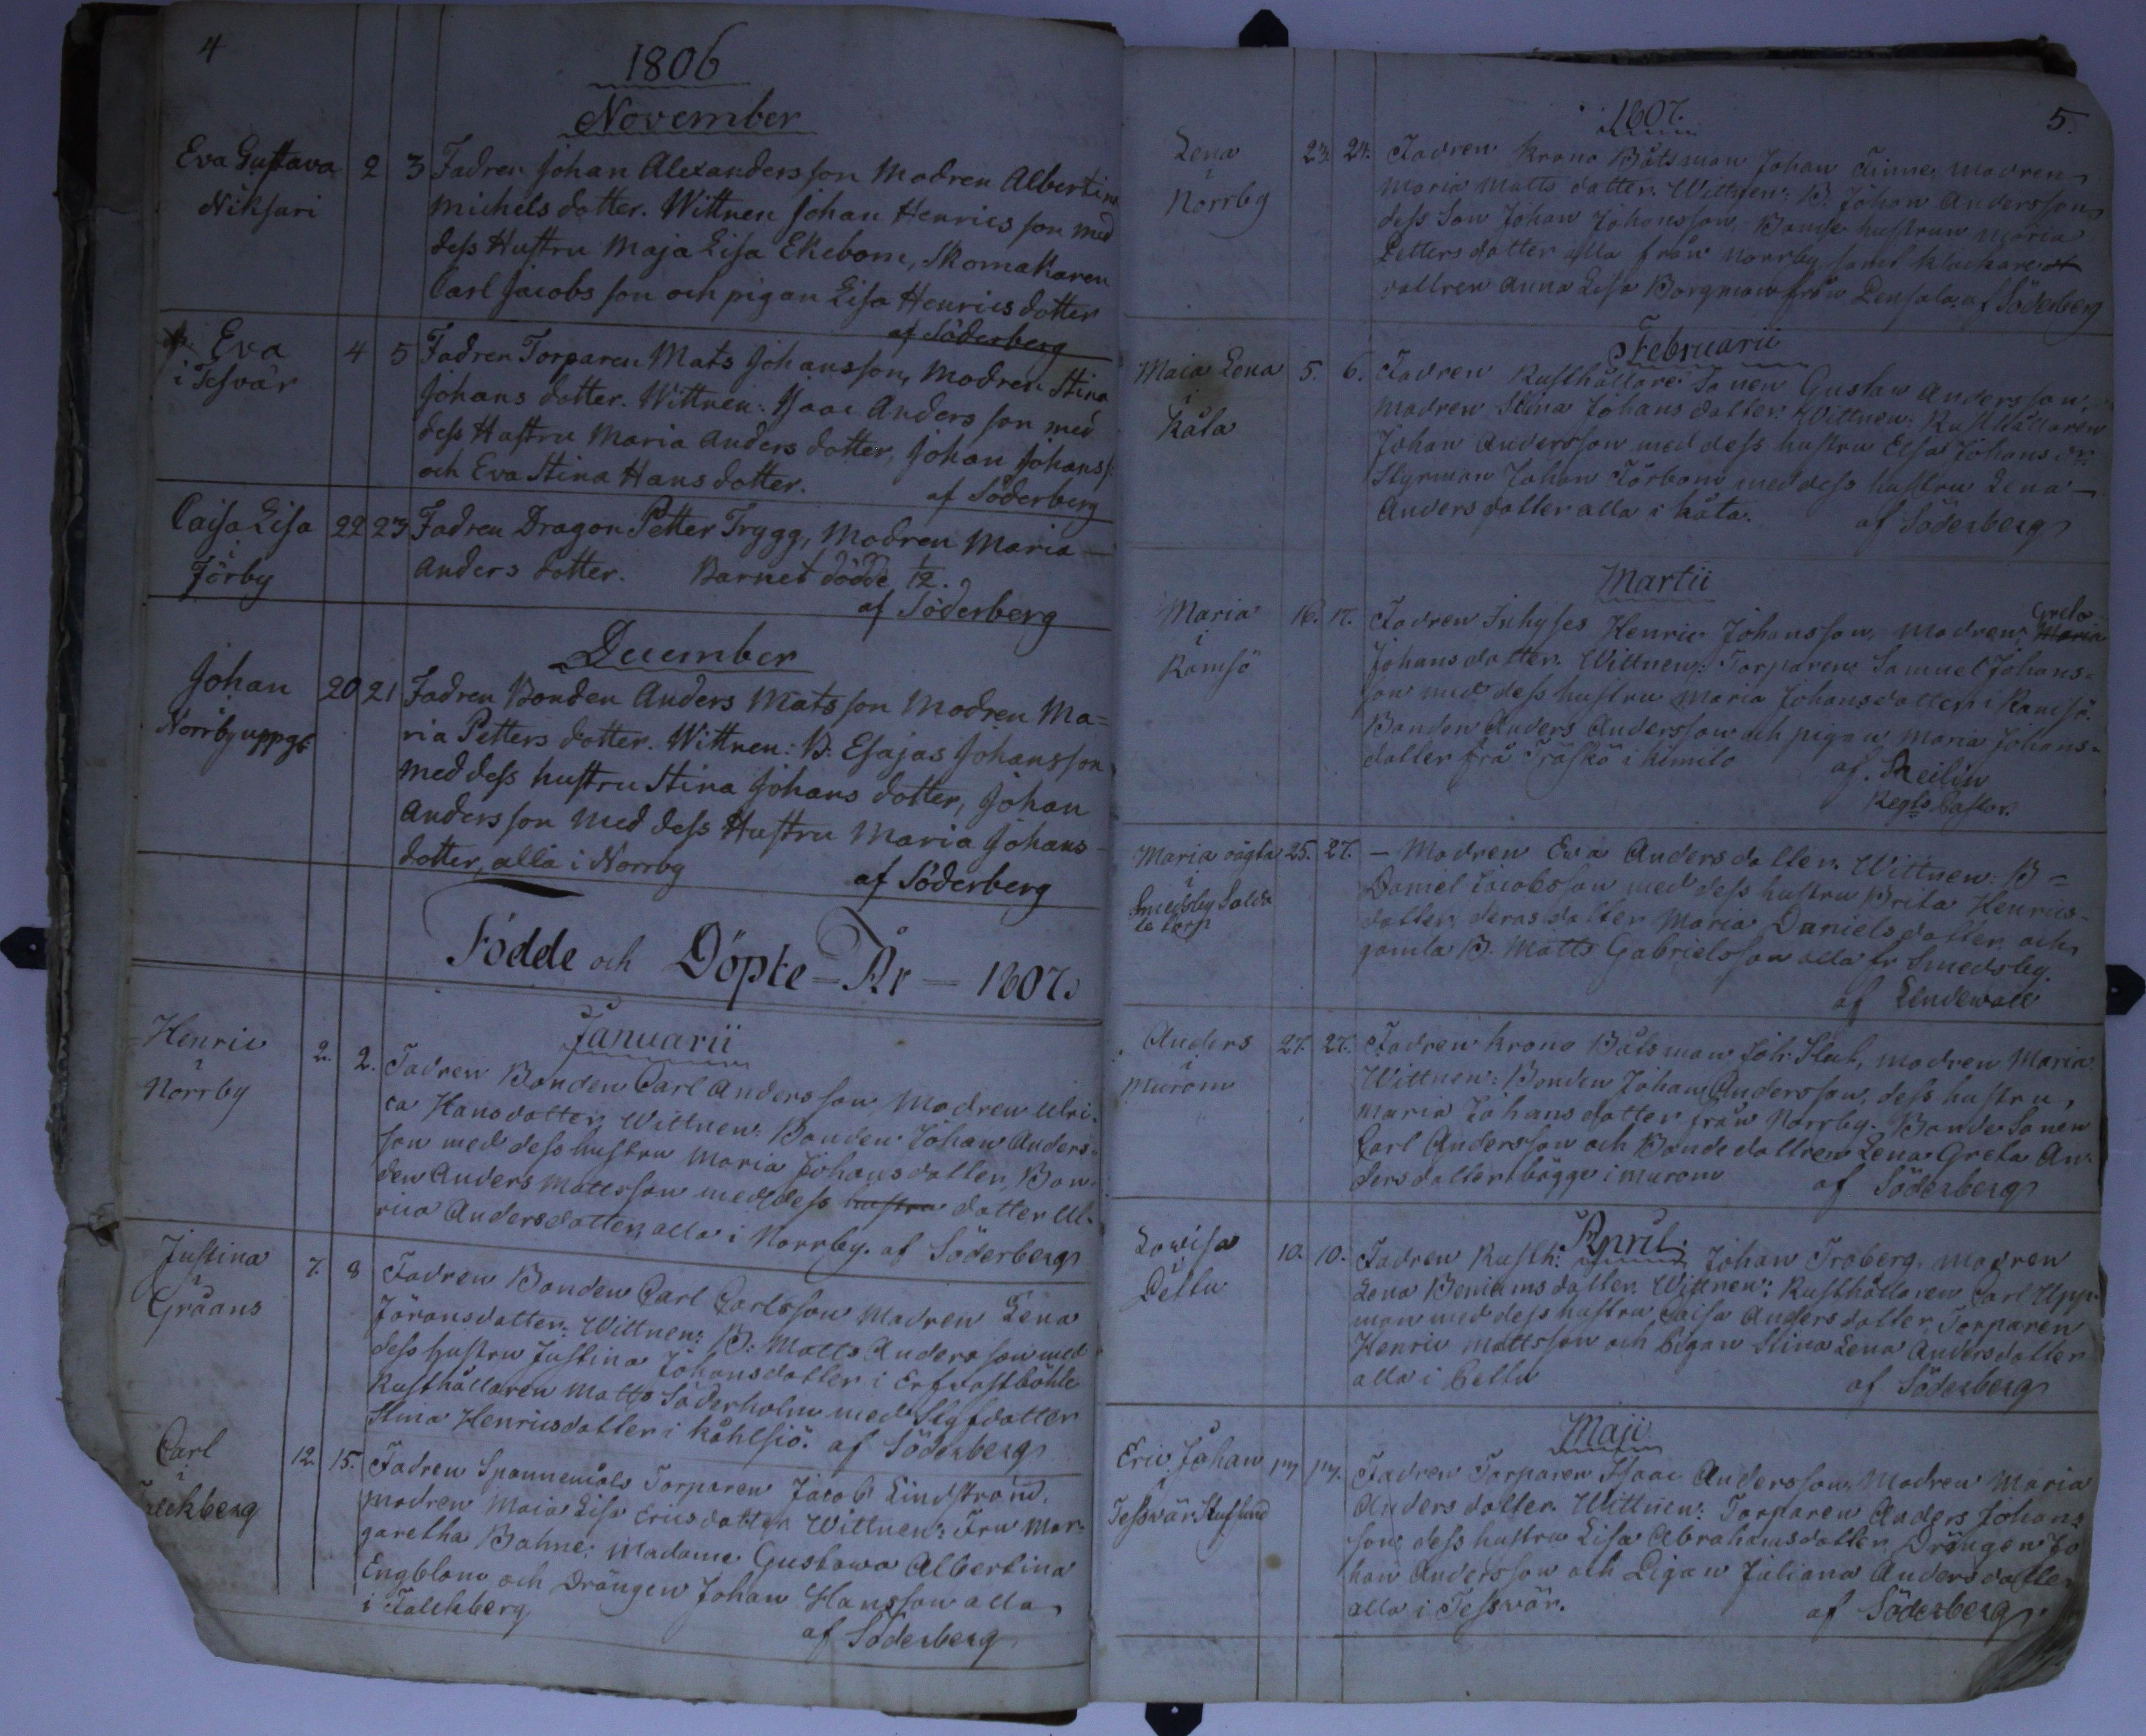 4
1806
November
Eva Gustava
Niksari
2 3 Fadren Johan Alexanders son Modren Albertina
Michels dotter. Wittnen Johan Henrics son med
dess Hustru Maja Lisa Ekebom, Skomakaren
Carl Jacobs son och pigan Lisa Henrics dotter
af Söderberg
Eva
i Tesvär
4 5 Fadren Torparen Mats Johansson, Modren Stina
Johans dotter. Wittnen: Isaac Anders son med
dess Hustru Maria Anders dotter, Johan Johanss:
och Eva Stina Hans dotter.
af Söderberg
Caisa Lisa
i
Förby
22 23 Fadren Dragon Petter Trygg, Modren Maria
Anders dotter. Barnet dödde 1/12.
af Söderberg
December
Johan
Norrby uppgd
20 21 Fadren Bonden Anders Mats son Modren Ma=
ria Petters dotter. Wittnen: B: Esajas Johansson
med dess hustru Stina Johans dotter, Johan
Anders son med dess Hustru Maria Johans
dotter, alla i Norrby
af Söderberg
Födde och Döpte=År — 1807.
Januarii
Henric
i
Norrby
2. 2. Fadren Bonden Carl Andersson Modren Ulri-
ca Hansdotter, Wittnen: Bonden Johan Anders-
son med dess hustru Maria Johansdotter, Bon-
den Anders Mattsson med dess hustru dotter Ul-
rica Andersdotter, alla i Norrby. af Söderberg
Justina
i
Gråans
7. 8 Fadren Bonden Carl Carlsson Modren Lena
Göransdotter: Wittnen: B: Matts Andersson med
dess hustru Justina Johansdotter i Erfvastböhle
Rusthållaren Matts Söderholm med Styfdotter
Stina Henricsdotter i Kåhlsiö. af Söderberg
Carl
i
Falckberg
12. 15. Fadren Spannemåls Torparen Jacob Lindstrand,
Modren Maia Lisa Ericsdotter Wittnen: Fru Mar-
garetha Bahne, Madame Gustawa Albertina
Engblom och Drängen Johan Hansson alla
i Falckberg
af Söderberg
1807.
5.
Lena
i
Norrby
23. 24. Fadren Krono Båtsman Johan Finne, Modren
Maria Matts dotter. Wittnen: B. Johan Andersson
dess Son Johan Johansson, Bonde hustrun Maria
Petters dotter alla från Norrby samt Klockare
dottren Anna Lisa Borgman från Pensala. af Söderberg
Februarii
Maia Lena
i
Kåla
5. 6. Fadren Rusthållare Sonen Gustav Andersson,
Modren Stina Johans dotter. Wittnen: Rusthållaren
Johan Andersson med dess hustru Elsa Johans dr
Styrman Johan Förbom med dess hustru Lena
Anders dotter alla i Kåla.
af Söderberg
Martii
Maria
i
Ramsö
16. 17. Fadren Inhyses Henric Johansson, Modren Greta
Maria
Johansdotter. Wittnen: Torparen Samuel Johans-
son med dess hustru Maria Johansdotter i Ramsö.
Bonden Anders Andersson och pigan Maria Johans-
dotter frå Träskö i Kimito
af. Reilin
Regts Pastor.
Maria oägta
i
Smedsby Solda
te torp
25. 27. – Modren Eva Andersdotter. Wittnen: B=
Daniel Jacobsson med dess hustru Brita Henrics-
dotter, deras dotter Maria Danielsdotter, och
gamla B. Matts Gabrielsson alla fr Smedsby.
af Lindewall
Anders
i
Murom
27. 27. Fadren Krono Båtsman Joh: Slut, Modren Maria
Wittnen: Bonden Johan Andersson, dess hustru,
Maria Johansdotter från Norrby. Bonde Sonen
Carl Andersson och Bondedottren Lena Greta An-
dersdotter bägge i Murom
af Söderberg
April.
Lovisa
i
Pettu
10. 10. Fadren Rusth: Johan Troberg, Modren
Lena Beniamsdotter. Wittnen: Rusthållaren Carl Upp-
man med dess hustru Caisa Andersdotter, Torparen
Henric Mattsson och Pigan Stina Lena Andersdotter
alla i Pettu
af Söderberg
Maji
Eric Johan
i
Tessvär Stusund
17 17. Fadren Torparen Isaac Andersson, Modren Maria
Anders dotter. Wittnen: Torparen Anders Johans
son, dess hustru Lisa Abrahamsdotter, Drängen Jo
han Andersson och Pigan Juliana Andersdotter
alla i Tessvär.
af Söderberg